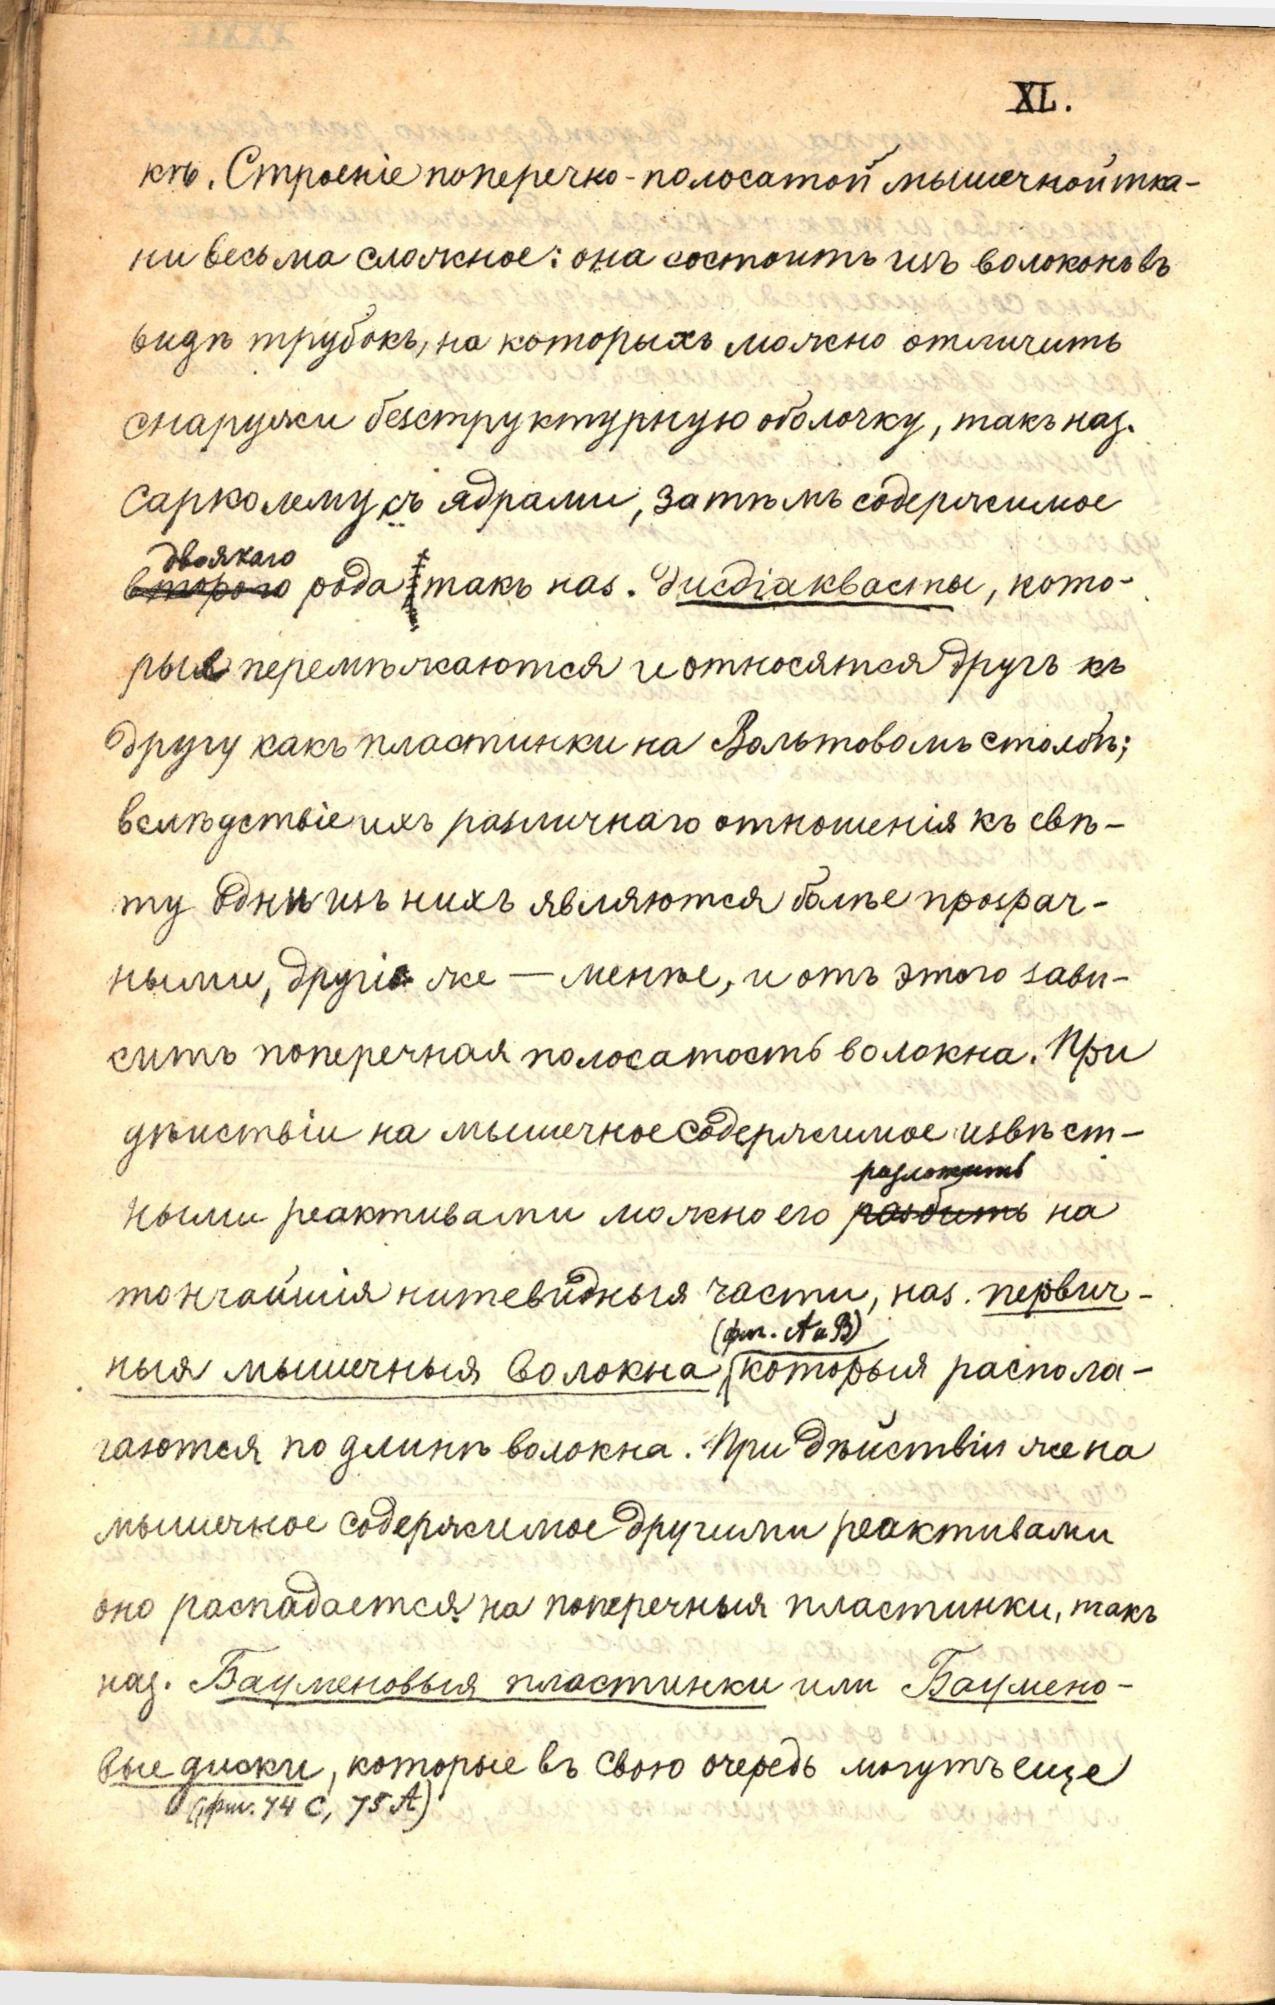 XL.
кѣ. Строеніе поперечно-полосатой мышечной тка-
ни весьма сложное: она состоитъ изъ волоконъ въ
видѣ трубокъ, на которыхъ можно отличить
снаружи безструктурную оболочку, такъ наз.
сарколему съ ядрами, затѣмъ содержимое
двоякаго
второго рода такъ наз. дисдіакласты, кото-
рые перемѣжаются и относятся другъ къ
другу какъ пластинки на Вольтовомъ столбѣ;
вслѣдствіе ихъ различнаго отношенія къ свѣ-
ту одни изъ нихъ являются болѣе прозрач-
ными, другіе же — менѣе, и отъ этого зави-
ситъ поперечная полосатость волокна. При
дѣйствіи на мышечное содержимое извѣст-
разложить
ными реактивами можно его разбить на
тончайшія нитевидныя части, наз. первич-
(фиг. A и B)
ныя мышечныя волокна, которыя распола-
гаются по длинѣ волокна. При дѣйствіи же на
мышечное содержимое другими реактивами
оно распадается на поперечныя пластинки, такъ
наз. Бауменовыя пластинки или Баумено-
вые диски, которые въ свою очередь могутъ еще
(фиг. 74 C, 75 A)